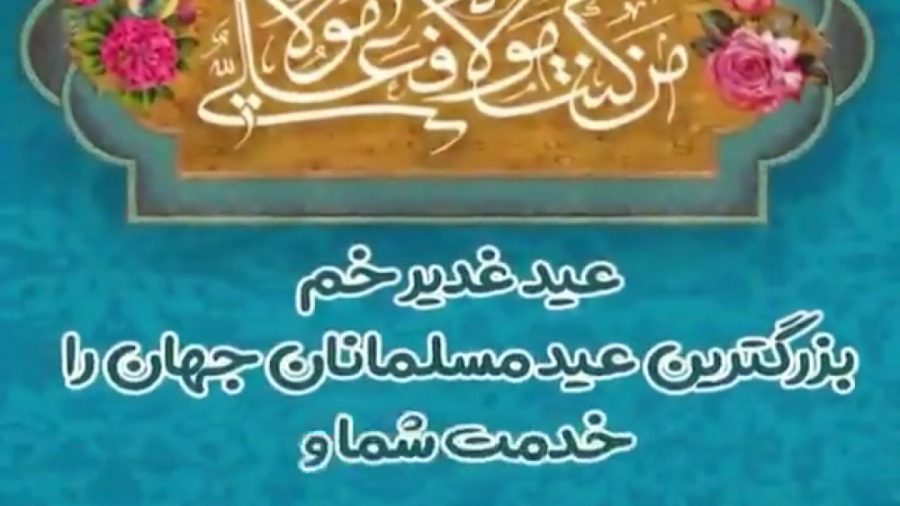 من کنت مولاه فعلی مولاه
عید غدیر خم
بزرگترین عید مسلمانان جهان را
خدمت شما و